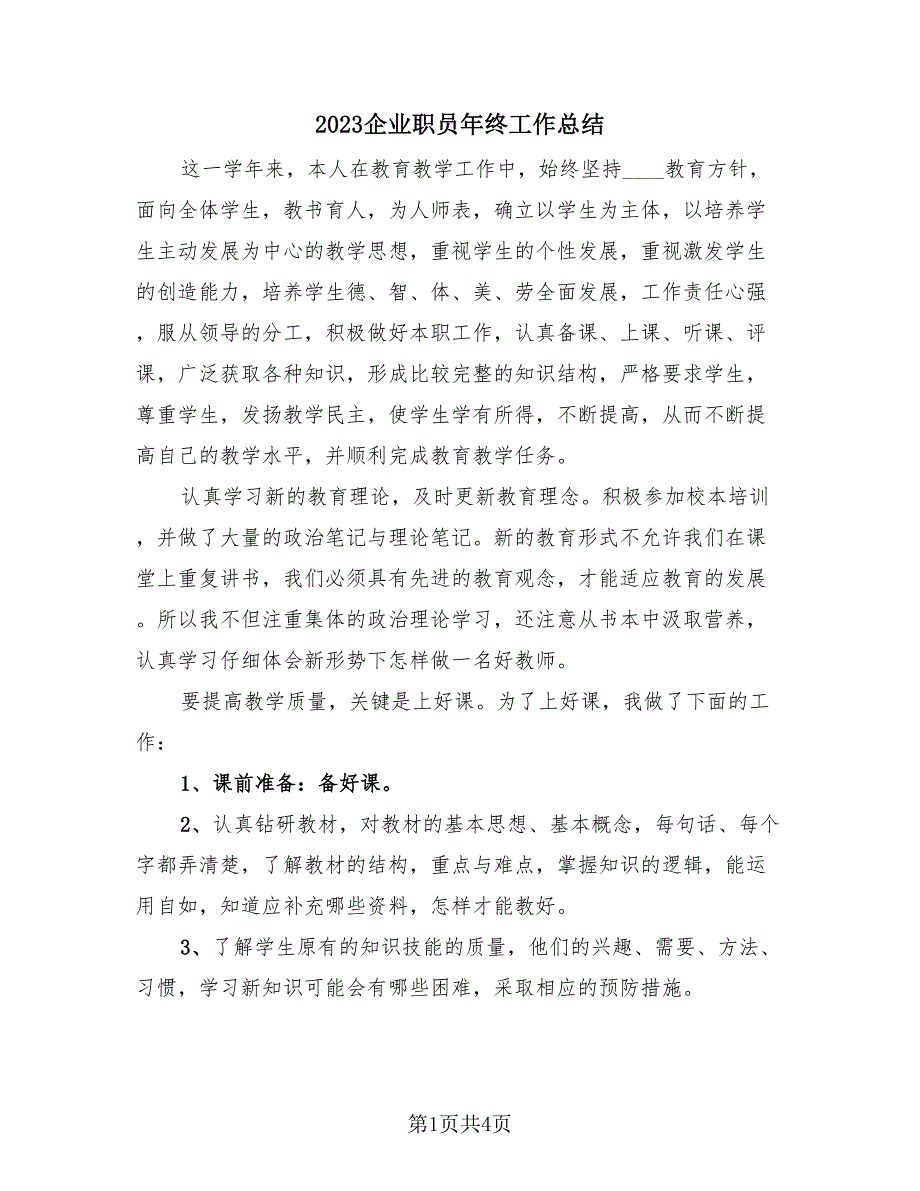 2023企业职员年终工作总结
这一学年来，本人在教育教学工作中，始终坚持____教育方针，
面向全体学生，教书育人，为人师表，确立以学生为主体，以培养学
生主动发展为中心的教学思想，重视学生的个性发展，重视激发学生
的创造能力，培养学生德、智、体、美、劳全面发展，工作责任心强
，服从领导的分工，积极做好本职工作，认真备课、上课、听课、评
课，广泛获取各种知识，形成比较完整的知识结构，严格要求学生，
尊重学生，发扬教学民主，使学生学有所得，不断提高，从而不断提
高自己的教学水平，并顺利完成教育教学任务。
认真学习新的教育理论，及时更新教育理念。积极参加校本培训
，并做了大量的政治笔记与理论笔记。新的教育形式不允许我们在课
堂上重复讲书，我们必须具有先进的教育观念，才能适应教育的发展
。所以我不但注重集体的政治理论学习，还注意从书本中汲取营养，
认真学习仔细体会新形势下怎样做一名好教师。
要提高教学质量，关键是上好课。为了上好课，我做了下面的工
作：
1、课前准备：备好课。
2、认真钻研教材，对教材的基本思想、基本概念，每句话、每个
字都弄清楚，了解教材的结构，重点与难点，掌握知识的逻辑，能运
用自如，知道应补充哪些资料，怎样才能教好。
3、了解学生原有的知识技能的质量，他们的兴趣、需要、方法、
习惯，学习新知识可能会有哪些困难，采取相应的预防措施。
第1页共4页